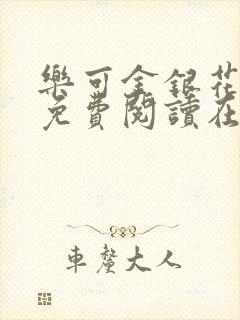 樂可金銀花
免費閱讀在
車釐大人